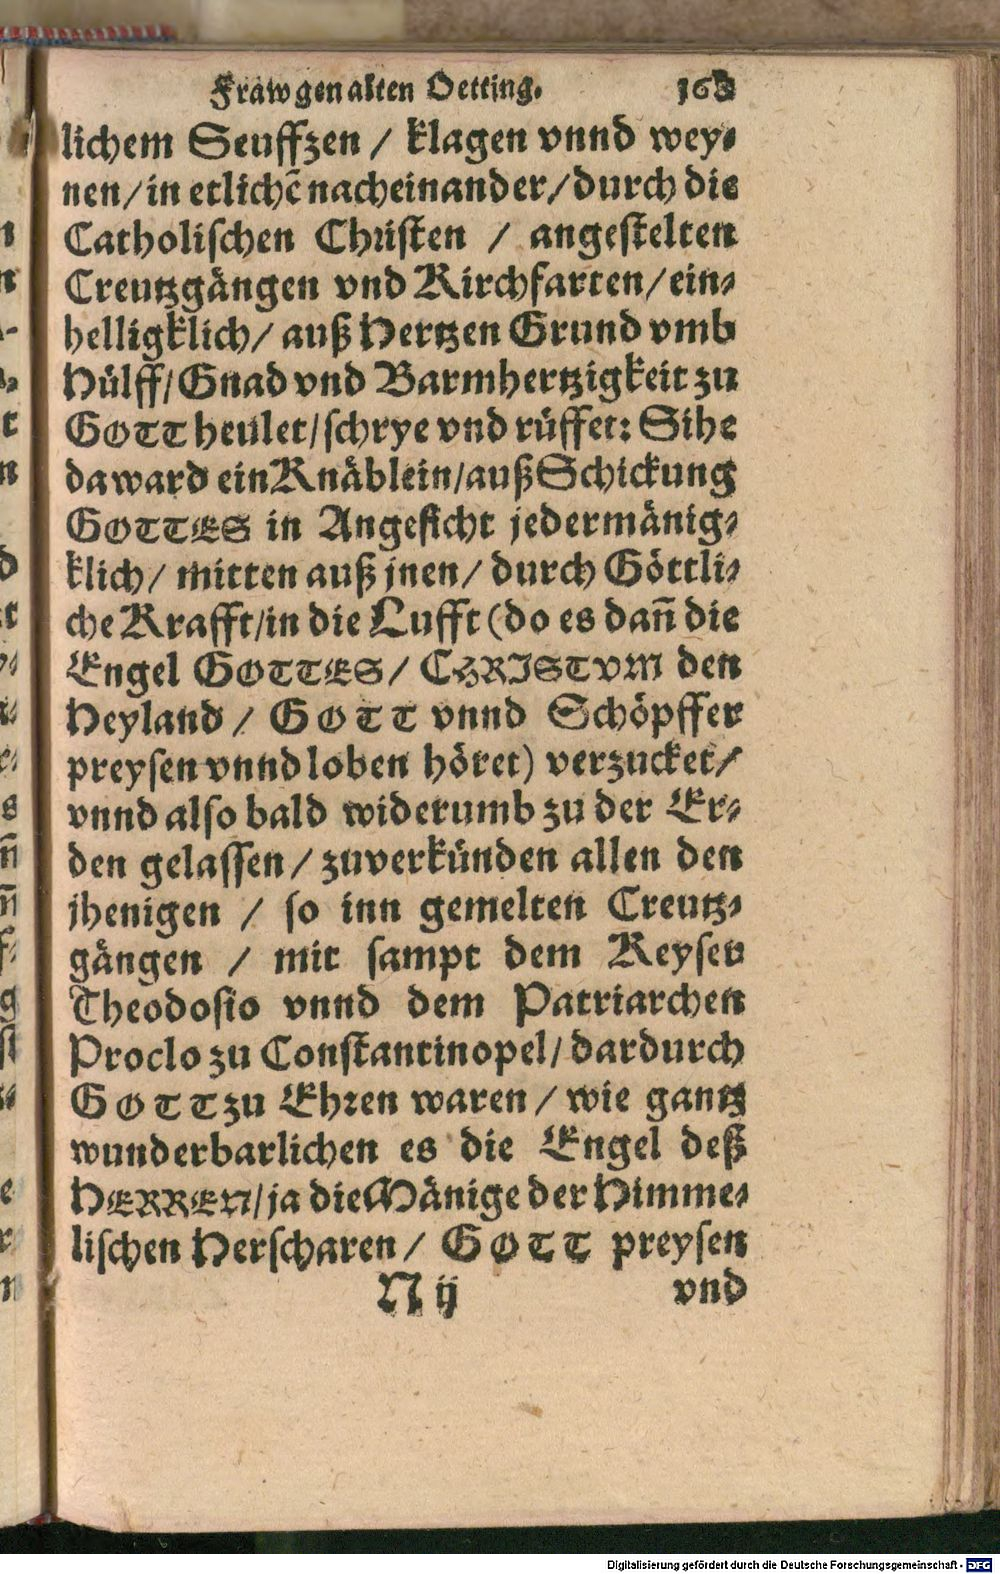 Fraw gen alten Oetting. 163
lichem Seuffzen / klagen vnnd wey⸗
nen / in etlichẽ nacheinander / durch die
Catholischen Christen / angestelten
Creutzgängen vnd Kirchfarten / ein⸗
helligklich / auß Hertzen Grund vmb
Hülff / Gnad vnd Barmhertzigkeit zu
GOTT heulet / schrye vnd rüffet: Sihe
da ward ein Knäblein / auß Schickung
GOTTES in Angesicht jedermänig⸗
klich / mitten auß jnen / durch Göttli⸗
che Krafft / in die Lufft (do es dañ die
Engel GOTTES / CHRISTVM den
Heyland / GOTT vnnd Schöpffer
preysen vnnd loben höret) verzucket /
vnnd also bald widerumb zu der Er⸗
den gelassen / zuverkünden allen den
jhenigen / so inn gemelten Creutz⸗
gängen / mit sampt dem Keyser
Theodosio vnnd dem Patriarchen
Proclo zu Constantinopel / dardurch
GOTT zu Ehren waren / wie gantz
wunderbarlichen es die Engel deß
HERREN / ja die Mänige der Himme⸗
lischen Herscharen / GOTT preysen
N ij vnd
Digitalisierung gefördert durch die Deutsche Forschungsgemeinschaft - DFG